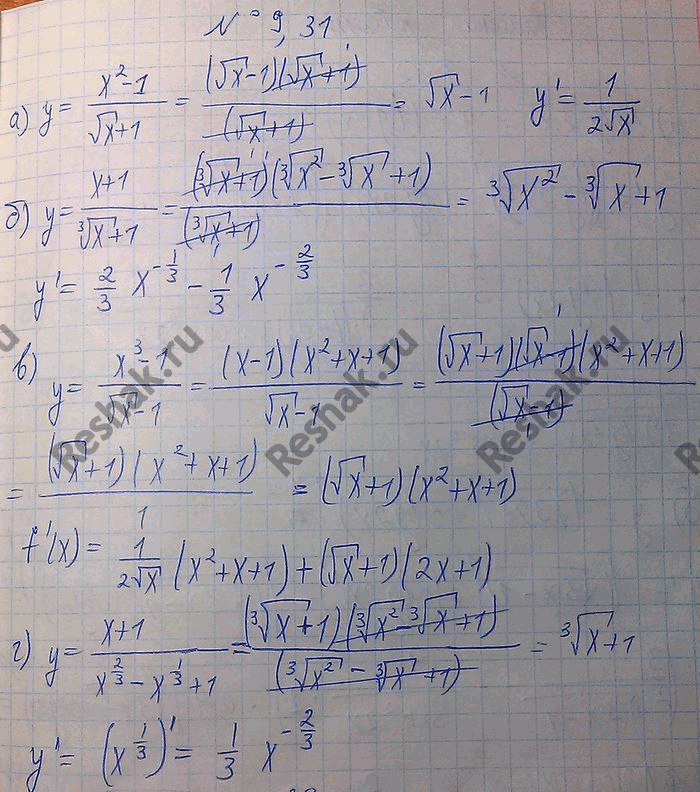 № 9,31
а) y = (x²-1)/(√x+1) = ((√x-1)(√x+1))/((√x+1)) = √x-1 y' = 1/(2√x)
б) y = (x+1)/(∛x+1) = ((∛x+1)(∛x²-∛x+1))/((∛x+1)) = ∛x² - ∛x+1
y' = 2/3 x^(-1/3) - 1/3 x^(-2/3)
в) y = (x³-1)/(√x-1) = ((x-1)(x²+x+1))/(√x-1) = ((√x+1)(√x-1)(x²+x+1))/((√x-1))
= ((√x+1)(x²+x+1))/1 = (√x+1)(x²+x+1)
f'(x) = 1/(2√x) (x²+x+1)+(√x+1)(2x+1)
г) y = (x+1)/(x^(2/3)-x^(1/3)+1) = ((∛x+1)(∛x²-∛x+1))/((∛x²-∛x+1)) = ∛x+1
y' = (x^(1/3))' = 1/3 x^(-2/3)
Reshak.ru
Reshak.ru
Reshak.ru